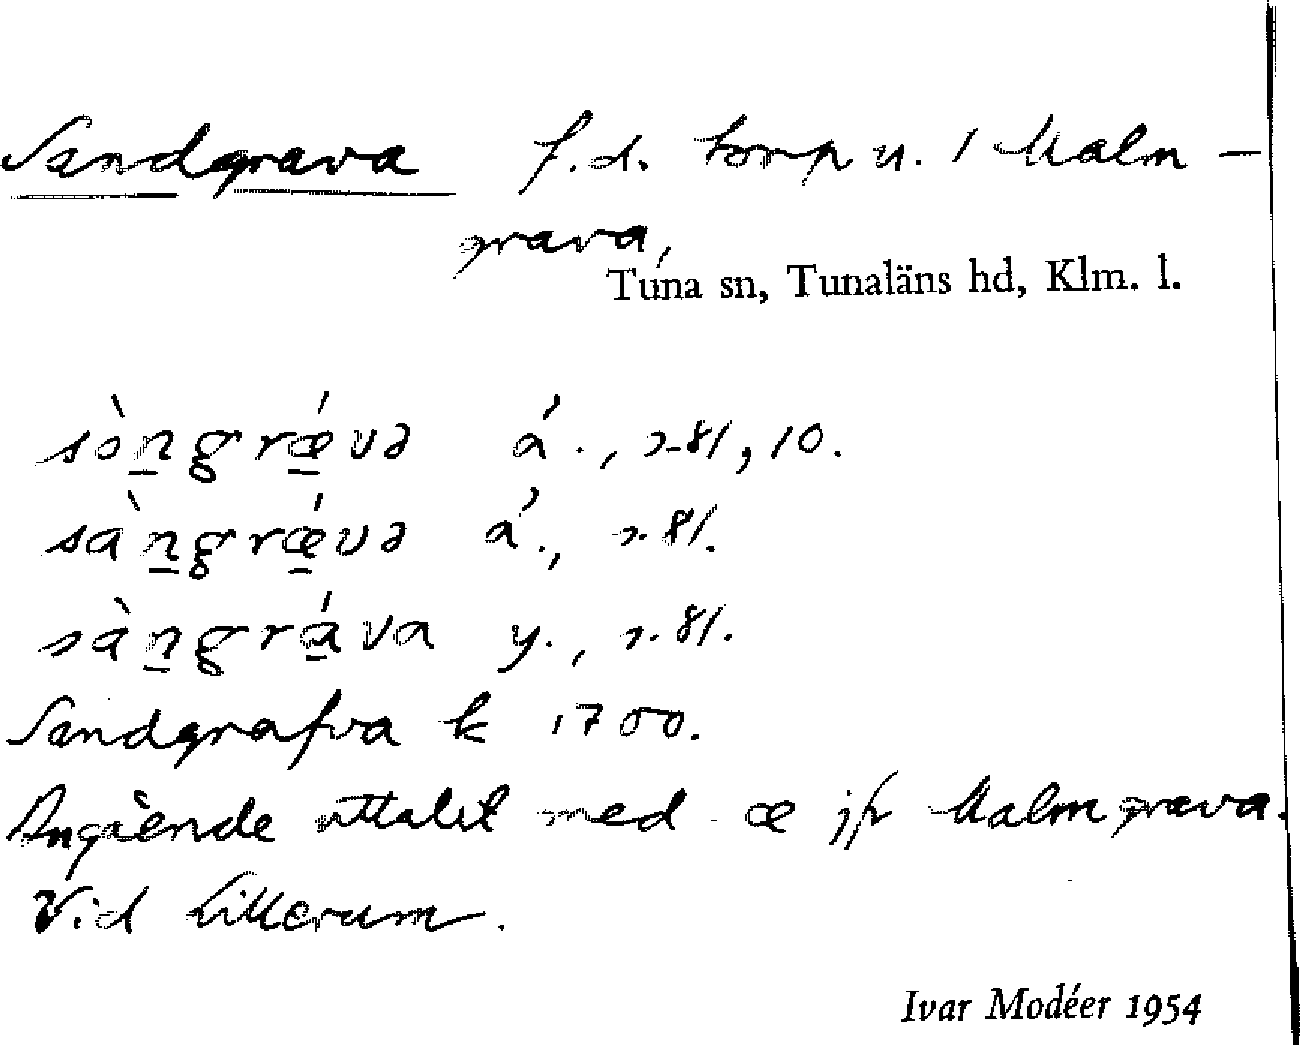 Sandgrava f.d. torp u. 1 Malm-
grava,
Tuna sn, Tunaläns hd, Klm. l.
sòn̲grǽ̲və á., s. 81, 10.
sàn̲grǽ̲və á., s. 81.
sàn̲grá̲va y., s. 81.
Sandgrafva k 1700.
Angående uttalet med æ jfr Malmgrava.
Vid Lillerum.
Ivar Modéer 1954